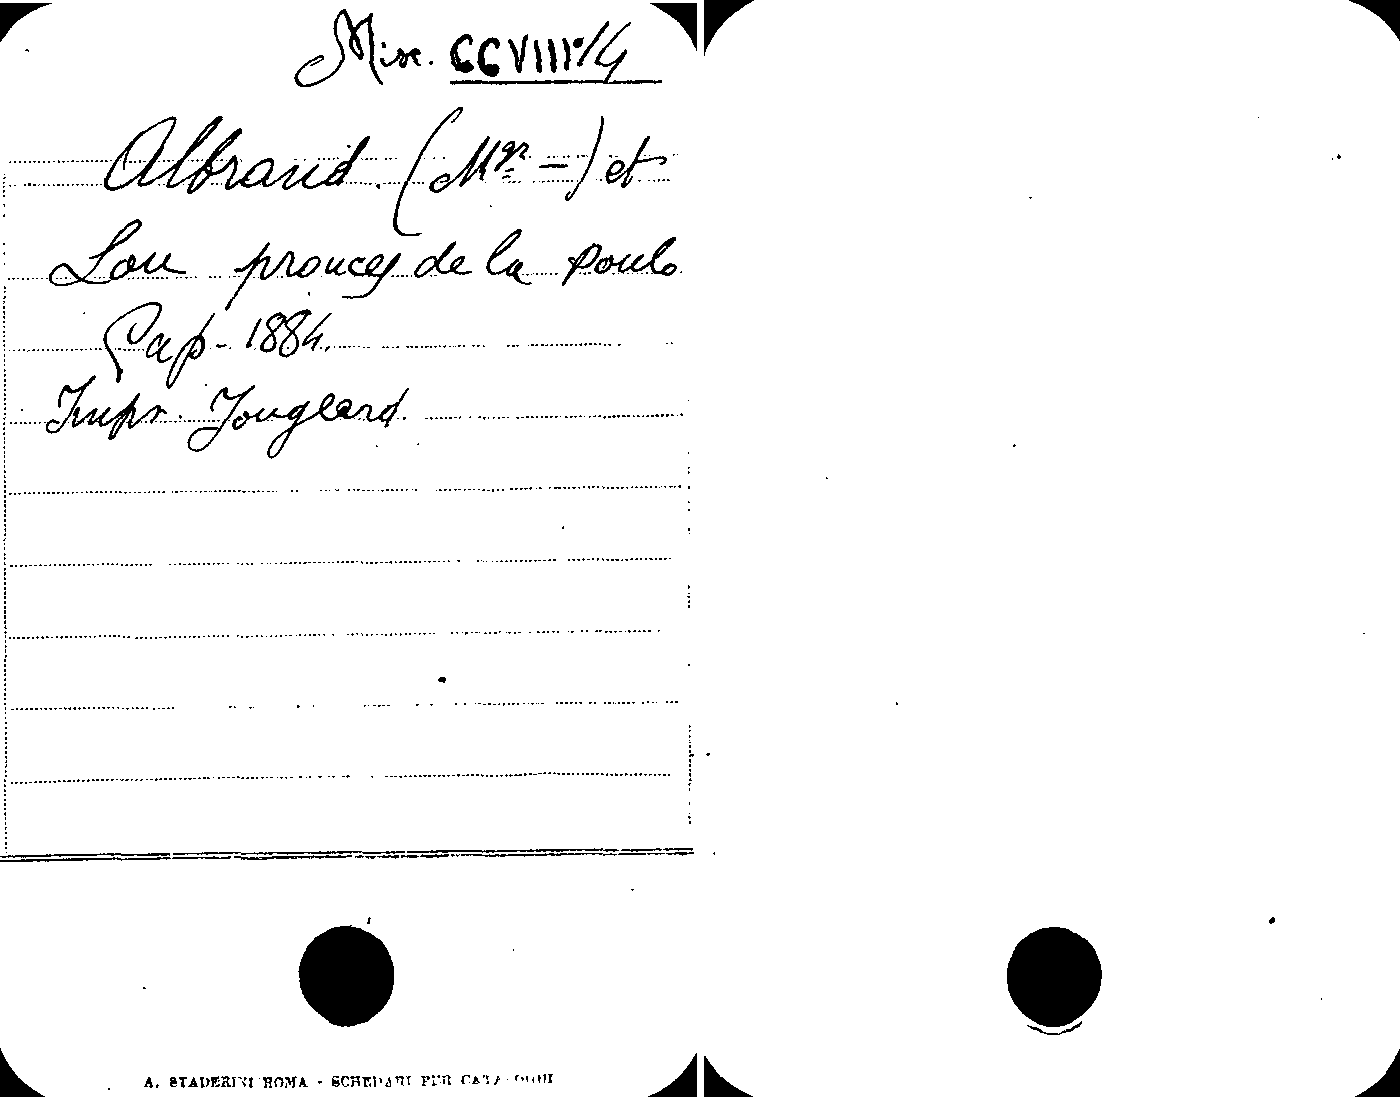 Misc. CCVIII/4
Albrand. (Mgr –) et
Lou proucès de la Poulo
Gap – 1884.
Impr. Jougland.
A. STADERINI ROMA - SCHEDARI PER CATALOGHI